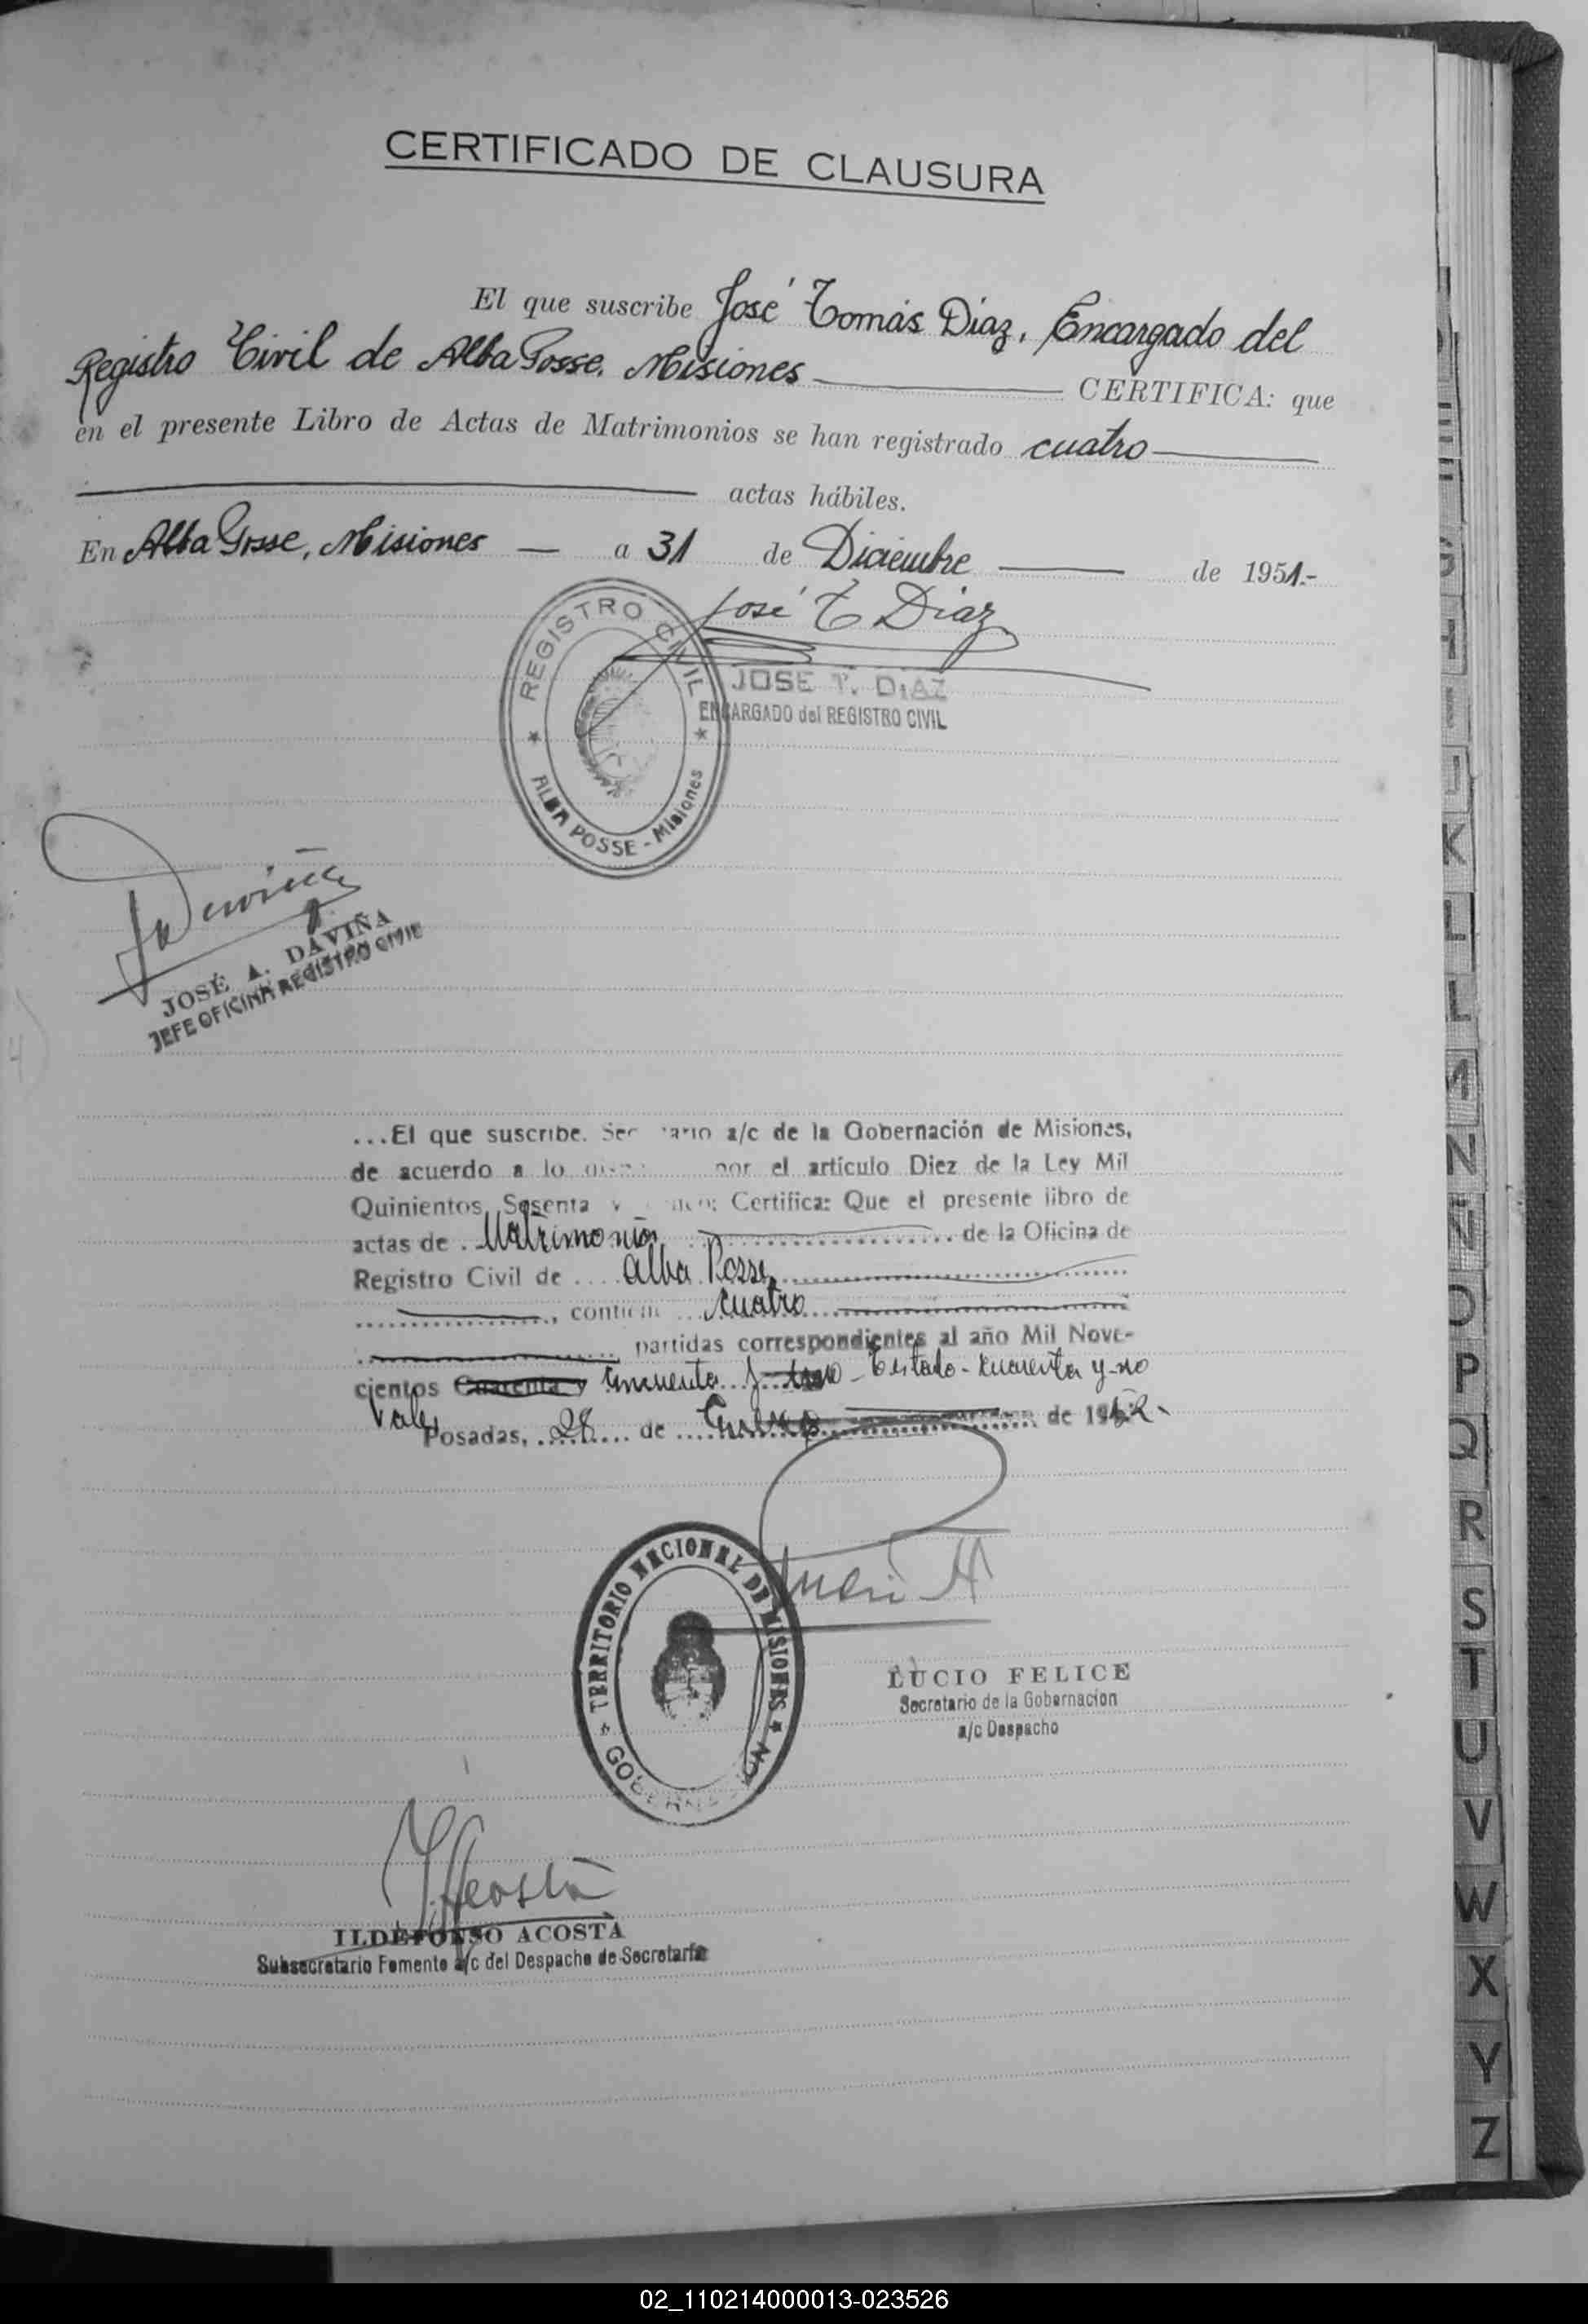 CERTIFICADO DE CLAUSURA
El que suscribe José Tomás Díaz, Encargado del
Registro Civil de Alba Posse, Misiones CERTIFICA: que
en el presente Libro de Actas de Matrimonios se han registrado cuatro
actas hábiles.
En Alba Posse, Misiones — a 31 de Diciembre — de 1951.-
José T Díaz
REGISTRO CIVIL
ALBA POSSE - Misiones
JOSE T. DIAZ
ENCARGADO del REGISTRO CIVIL
JOSÉ A. DAVIÑA
JEFE OFICINA REGISTRO CIVIL
...El que suscribe. a/c de la Gobernación de Misiones,
de acuerdo a lo por el artículo Diez de la Ley Mil
Quinientos Sesenta y Certifica: Que el presente libro de
actas de Matrimonios de la Oficina de
Registro Civil de Alba Posse
, contiene cuatro
partidas correspondientes al año Mil Nove-
cientos Cuarenta y Cincuenta y - Testado - Cuarenta y - no
Vale,
Posadas, 28 de de 1952.
TERRITORIO NACIONAL DE MISIONES
GOBERNACION
LUCIO FELICE
Secretario de la Gobernacion
a/c Despacho
ILDEFONSO ACOSTA
Subsecretario Fomento a/c del Despacho de Secretaría
K
L
L
M
N
Ñ
O
P
Q
R
S
T
U
V
W
X
Y
Z
02_110214000013-023526